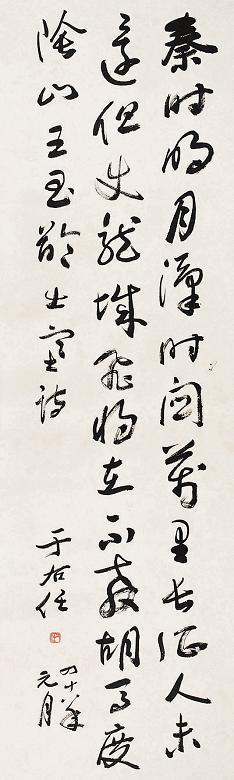 秦時明月漢時關萬里長征人未
還但使龍城飛將在不教胡馬度
陰山王昌齡出塞詩
于右任
四十年
元月